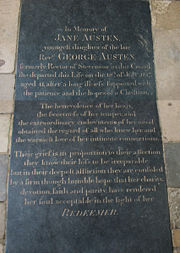 In Memory of
JANE AUSTEN,
youngest daughter of the late
Revd GEORGE AUSTEN,
formerly Rector of Steventon in this County
she departed this Life on the 18th of July 1817,
aged 41, after a long illness supported with
the patience and the hopes of a Christian.
The benevolence of her heart,
the sweetness of her temper, and
the extraordinary endowments of her mind
obtained the regard of all who knew her and
the warmest love of her intimate connections.
Their grief is in proportion to their affection
they know their loss to be irreparable,
but in their deepest affliction they are consoled
by a firm though humble hope that her charity,
devotion, faith and purity, have rendered
her soul acceptable in the sight of her
REDEEMER